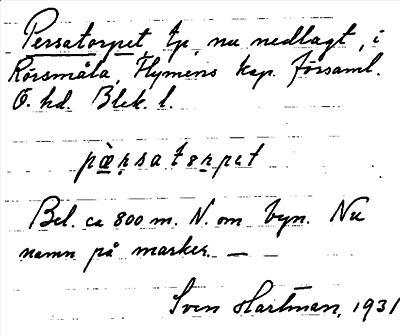 Persatorpet tp, nu nedlagt, i
Rörsmåla, Flymens kap. församl.
Ö. hd. Blek. l.
pæ̀rsatɵrpet
Bel. ca 800 m. N. om byn. Nu
namn på marker. —
Sven Hartman, 1931